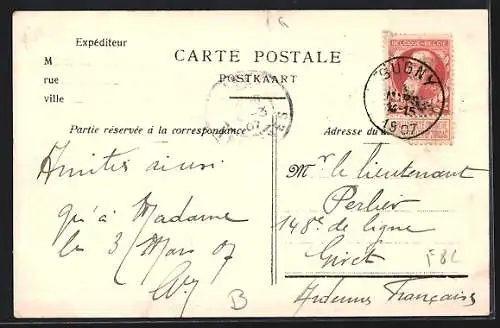 Expéditeur
M
rue
ville
CARTE POSTALE
POSTKAART
BELGIQUE·BELGIË
SUGNY
1907
Partie réservée à la correspondance
Adresse du d
Amitiés ainsi
qu'à Madame
le 3 Mars 07
Mr le lieutenant
Perlier
148e de ligne
Givet
Ardennes Françaises
B
FBL